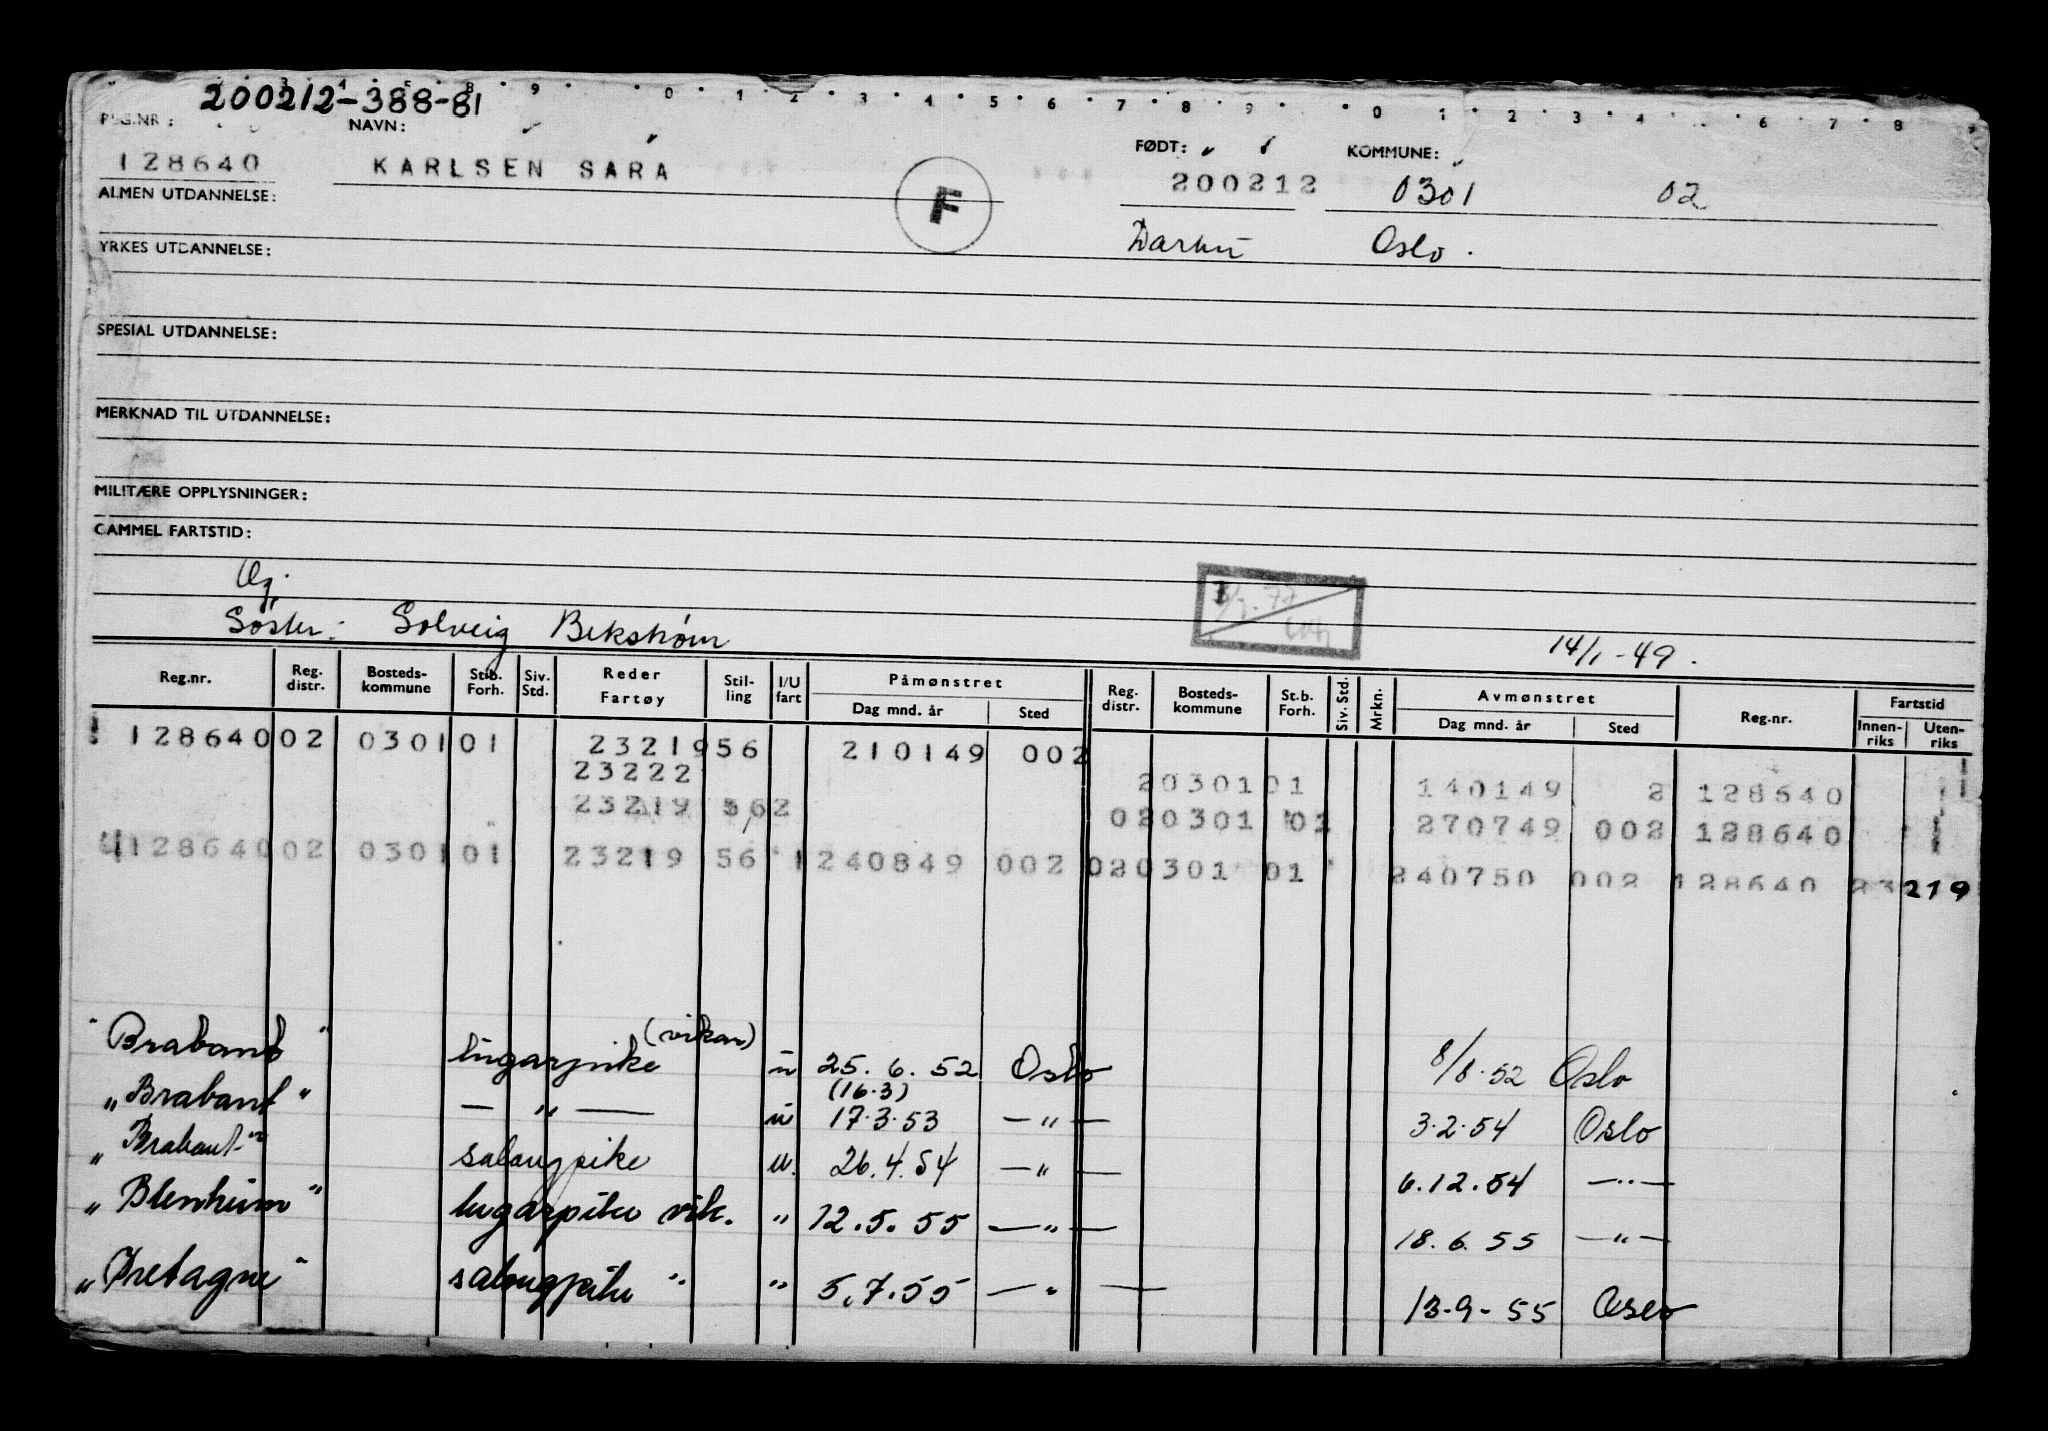 200212-388-81
REG.NR: NAVN: FØDT: KOMMUNE:
128640 KARLSEN SARA F 200212 0301 02
ALMEN UTDANNELSE:
Oslo.
YRKES UTDANNELSE:
SPESIAL UTDANNELSE:
MERKNAD TIL UTDANNELSE:
MILITÆRE OPPLYSNINGER:
GAMMEL FARTSTID:
Søster: Solveig Bekstrøm 14/1-49.
Reg.nr. Reg. distr. Bosteds-kommune St.b. Forh. Siv. Std. Reder Fartøy Stil-ling I/U fart Påmønstret Dag mnd. år Sted Reg. distr. Bosteds-kommune St.b. Forh. Siv. Std. Mrkn. Avmønstret Dag mnd. år Sted Reg.nr. Fartstid Innen-riks Uten-riks
128640 02 0301 01 23219 56 210149 002
23222 2 0301 01 140149 2 128640
23219 562 02 0301 01 270749 002 128640
128640 02 0301 01 23219 56 1 240849 002 02 0301 01 240750 002 128640 23219
"Brabant" lugarpike (vikar) u 25.6.52 Oslo 8/8.52 Oslo
"Brabant" — " — u (16.3) 17.3.53 — " — 3.2.54 Oslo
"Brabant" salongpike u. 26.4.54 — " — 6.12.54 — " —
"Blenheim" lugarpike vik. " 12.5.55 — " — 18.6.55 — " —
"Bretagne" salongpike " " 5.7.55 — " — 13-9-55 Oslo